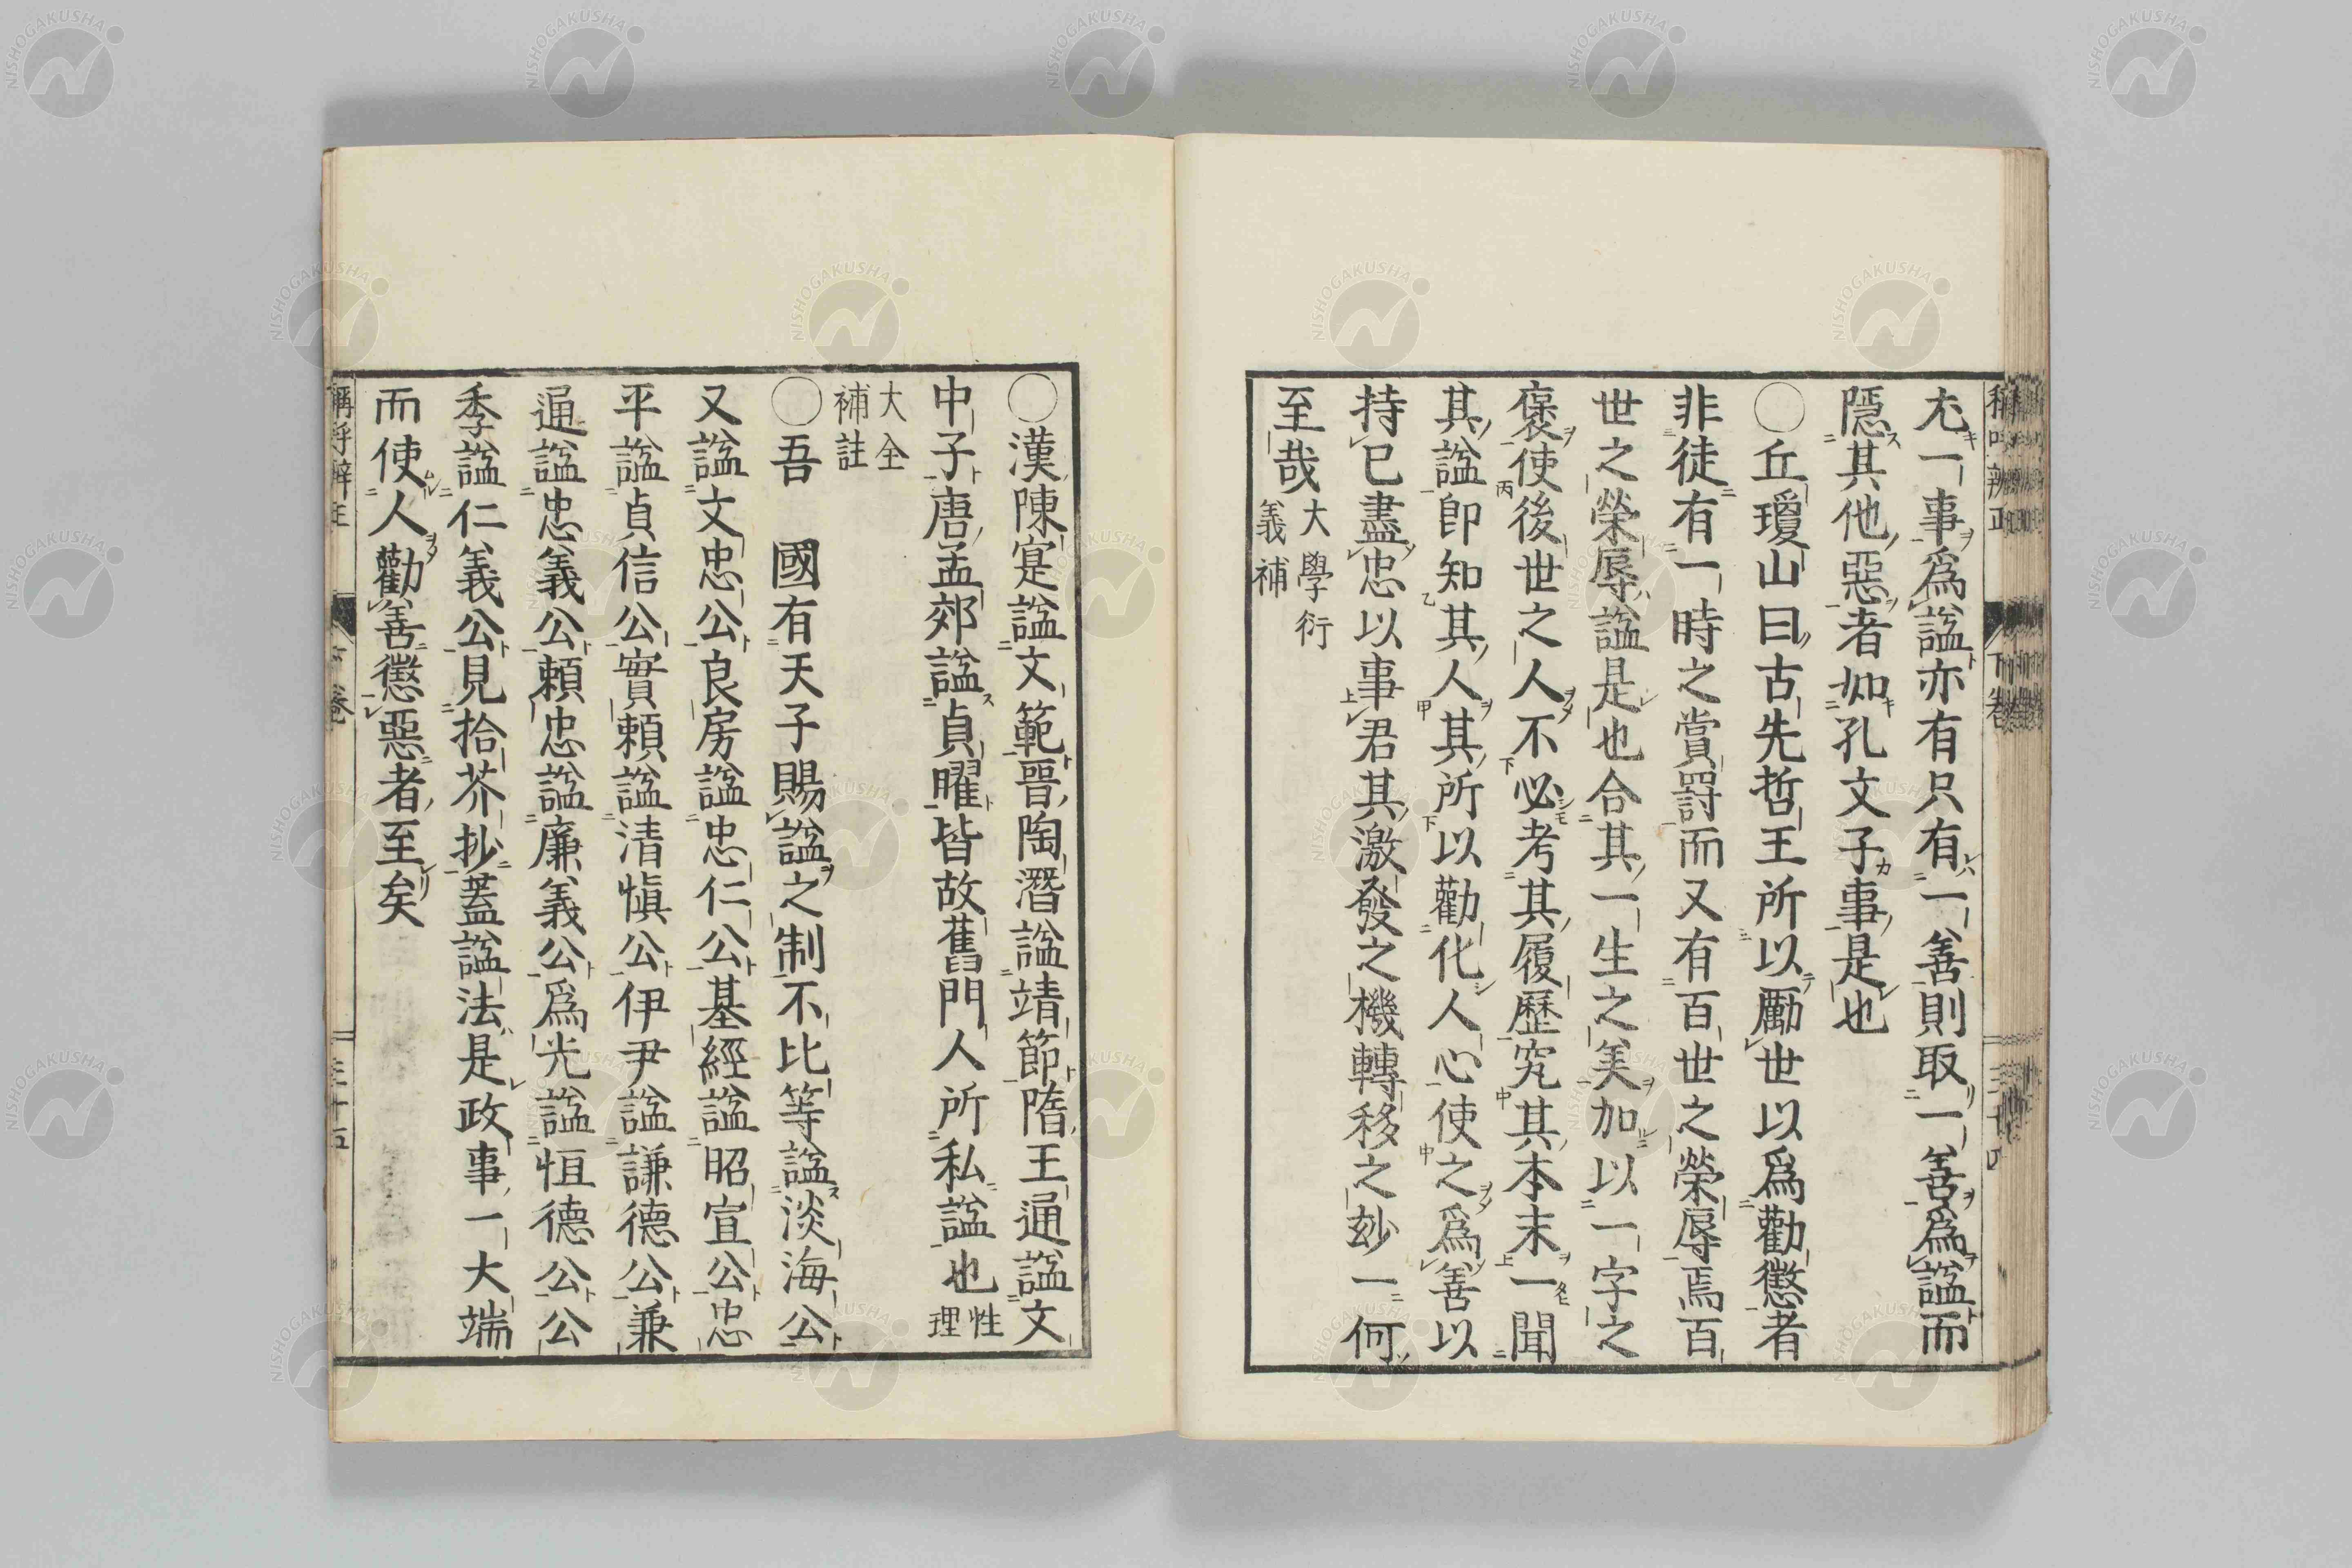 尤一事爲諡亦有只有一善則取一善爲諡而
隱其他惡者如孔文子事是也
〇丘瓊山曰古先哲王所以勵世以爲勸懲者
非徒有一時之賞罸而又有百世之榮辱焉百
世之榮辱諡是也合其一生之美加以一字之
褒使後世之人不必考其履歷究其本末一聞
其諡卽知其人其所以勸化人心使之爲善以
持已盡忠以事君其激發之機轉移之玅一何
至哉大學衍義補
〇漢陳寔諡文範晉陶潛諡靖節隋王通諡文
中子唐孟郊諡貞曜皆故舊門人所私諡也性理
大全補註
〇吾 國有天子賜諡之制不比等諡淡海公
又諡文忠公良房諡忠仁公基經諡昭宣公忠
平諡貞信公實賴諡清愼公伊尹諡謙德公兼
通諡忠義公賴忠諡廉義公爲光諡恒德公公
季諡仁義公見拾芥抄蓋諡法是政事一大端
而使人勸善懲惡者至矣
稱呼辨正 下卷 三十五